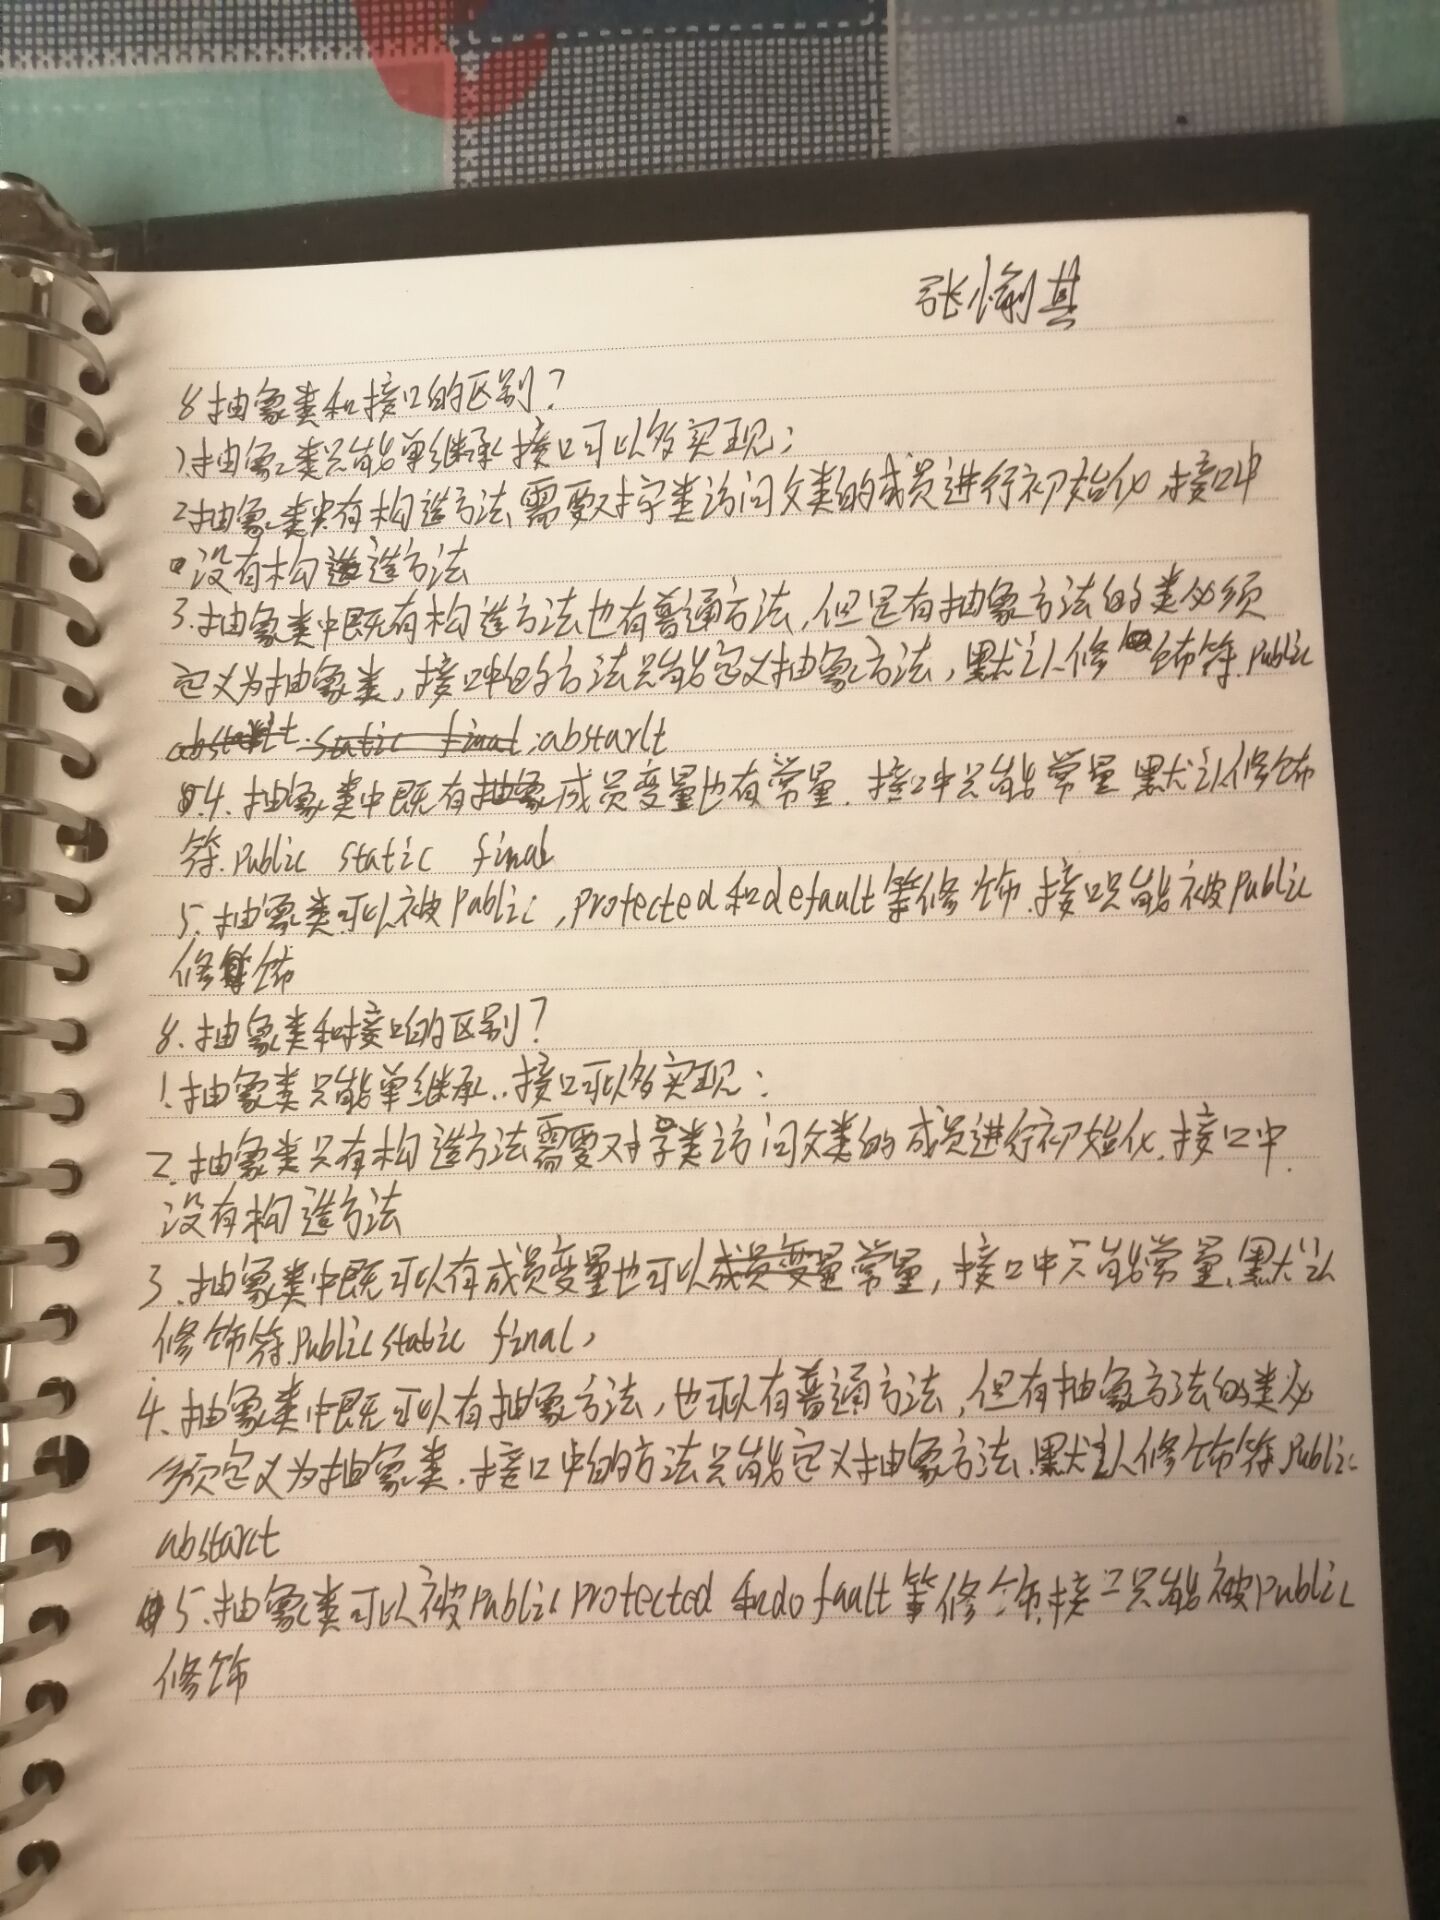 张愉其
8.抽象类和接口的区别?
1.抽象类只能单继承接口可以多实现;
2抽象类只有构造方法,需要对子类访问父类的成员进行初始化,接口中
没有构造方法
3.抽象类中既有构造方法也有普通方法,但是有抽象方法的类必须
定义为抽象类,接口中的方法只能定义抽象方法,默认修饰符.public
abstarlt. static final.abstarlt
4.抽象类中既有抽象成员变量也有常量.接口中只能常量 默认修饰
符.public static final
5.抽象类可以被public,protected和default等修饰.接口只能被public
修饰
8.抽象类和接口的区别?
1.抽象类只能单继承..接口可以多实现;
2.抽象类只有构造方法需要对子类访问父类的成员进行初始化.接口中.
没有构造方法
3.抽象类中既可以有成员变量也可以成员变量常量,接口中只能常量.默认
修饰符.public static final,
4.抽象类中既可以有抽象方法,也可以有普通方法,但有抽象方法的类必
须定义为抽象类.接口中的方法只能定义抽象方法.默认修饰符public
abstarct
5.抽象类可以被public protected 和default等修饰.接口只能被public
修饰